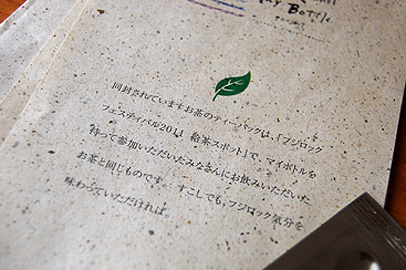 My Bottle
同封されていますお茶のティーバックは、「フジロック
フェスティバル2011 給茶スポット」で、マイボトルを
持って参加いただいたみなさんにお飲みいただいた
お茶と同じものです。すこしでも、フジロック気分を
味わっていただければ。